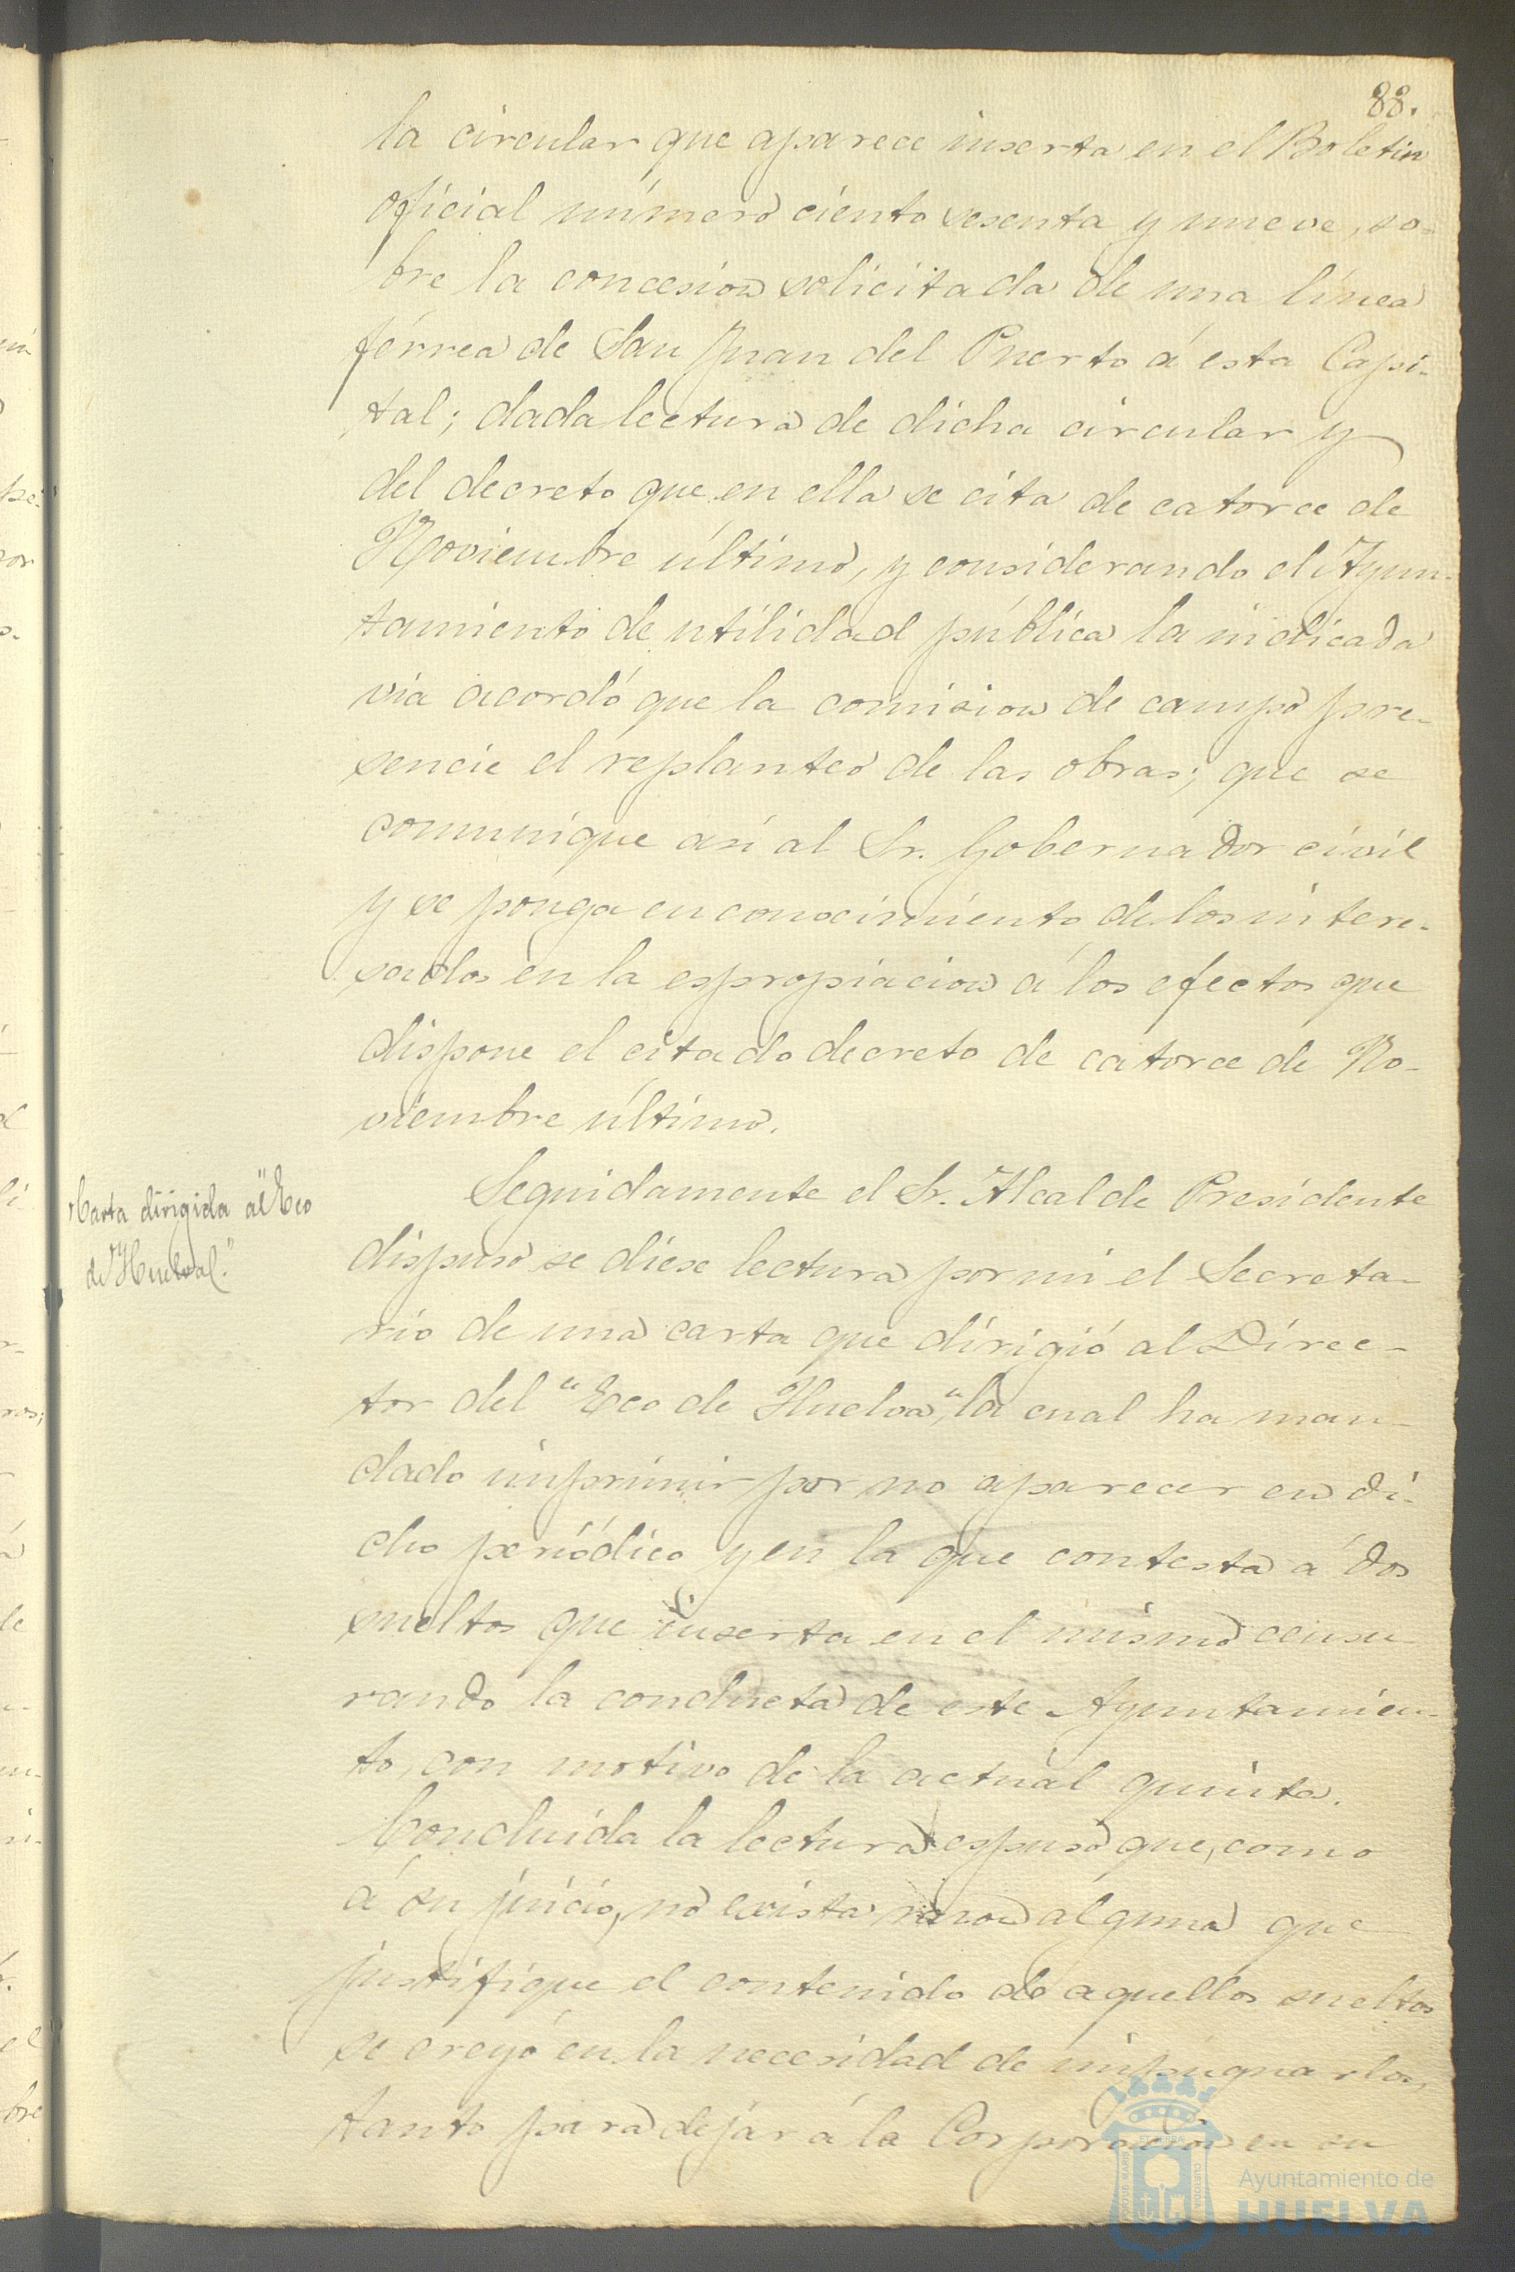 88.
la circular que aparece inserta en el Boletin
oficial número ciento sesenta y nueve, so-
bre la concesion solicitada de una línea
férrea de San Juan del Puerto á esta Capi-
tal; dada lectura de dicha circular y
del decreto que en ella se cita de catorce de
Noviembre último, y considerando el Ayun-
tamiento de utilidad pública la indicada
via acordó que la comision de campo pre-
sencie el replanteo de las obras; que se
comunique asi al Sr. Gobernador civil
y se ponga en conocimiento de los intere-
sados en la espropiacion á los efectos que
dispone el citado decreto de catorce de No-
viembre último.
Carta dirigida al "Eco
de Huelva."
Seguidamente el Sr. Alcalde Presidente
dispuso se diese lectura por mi el Secreta-
rio de una carta que dirigió al Direc-
tor del "Eco de Huelva", la cual ha man-
dado imprimir por no aparecer en di-
cho periódico y en la que contesta á dos
sueltos que inserta en el mismo censu-
rando la conducta de este Ayuntamien-
to, con motivo de la actual quinta.
Concluida la lectura espuso que, como
á su juicio, no exista razon alguna que
justifique el contenido de aquellos sueltos
se creyó en la necesidad de impugnarlos,
tanto para dejar á la Corporacion en su
PORTUS MARIS ET TERRAE CUSTODIA
Ayuntamiento de
HUELVA